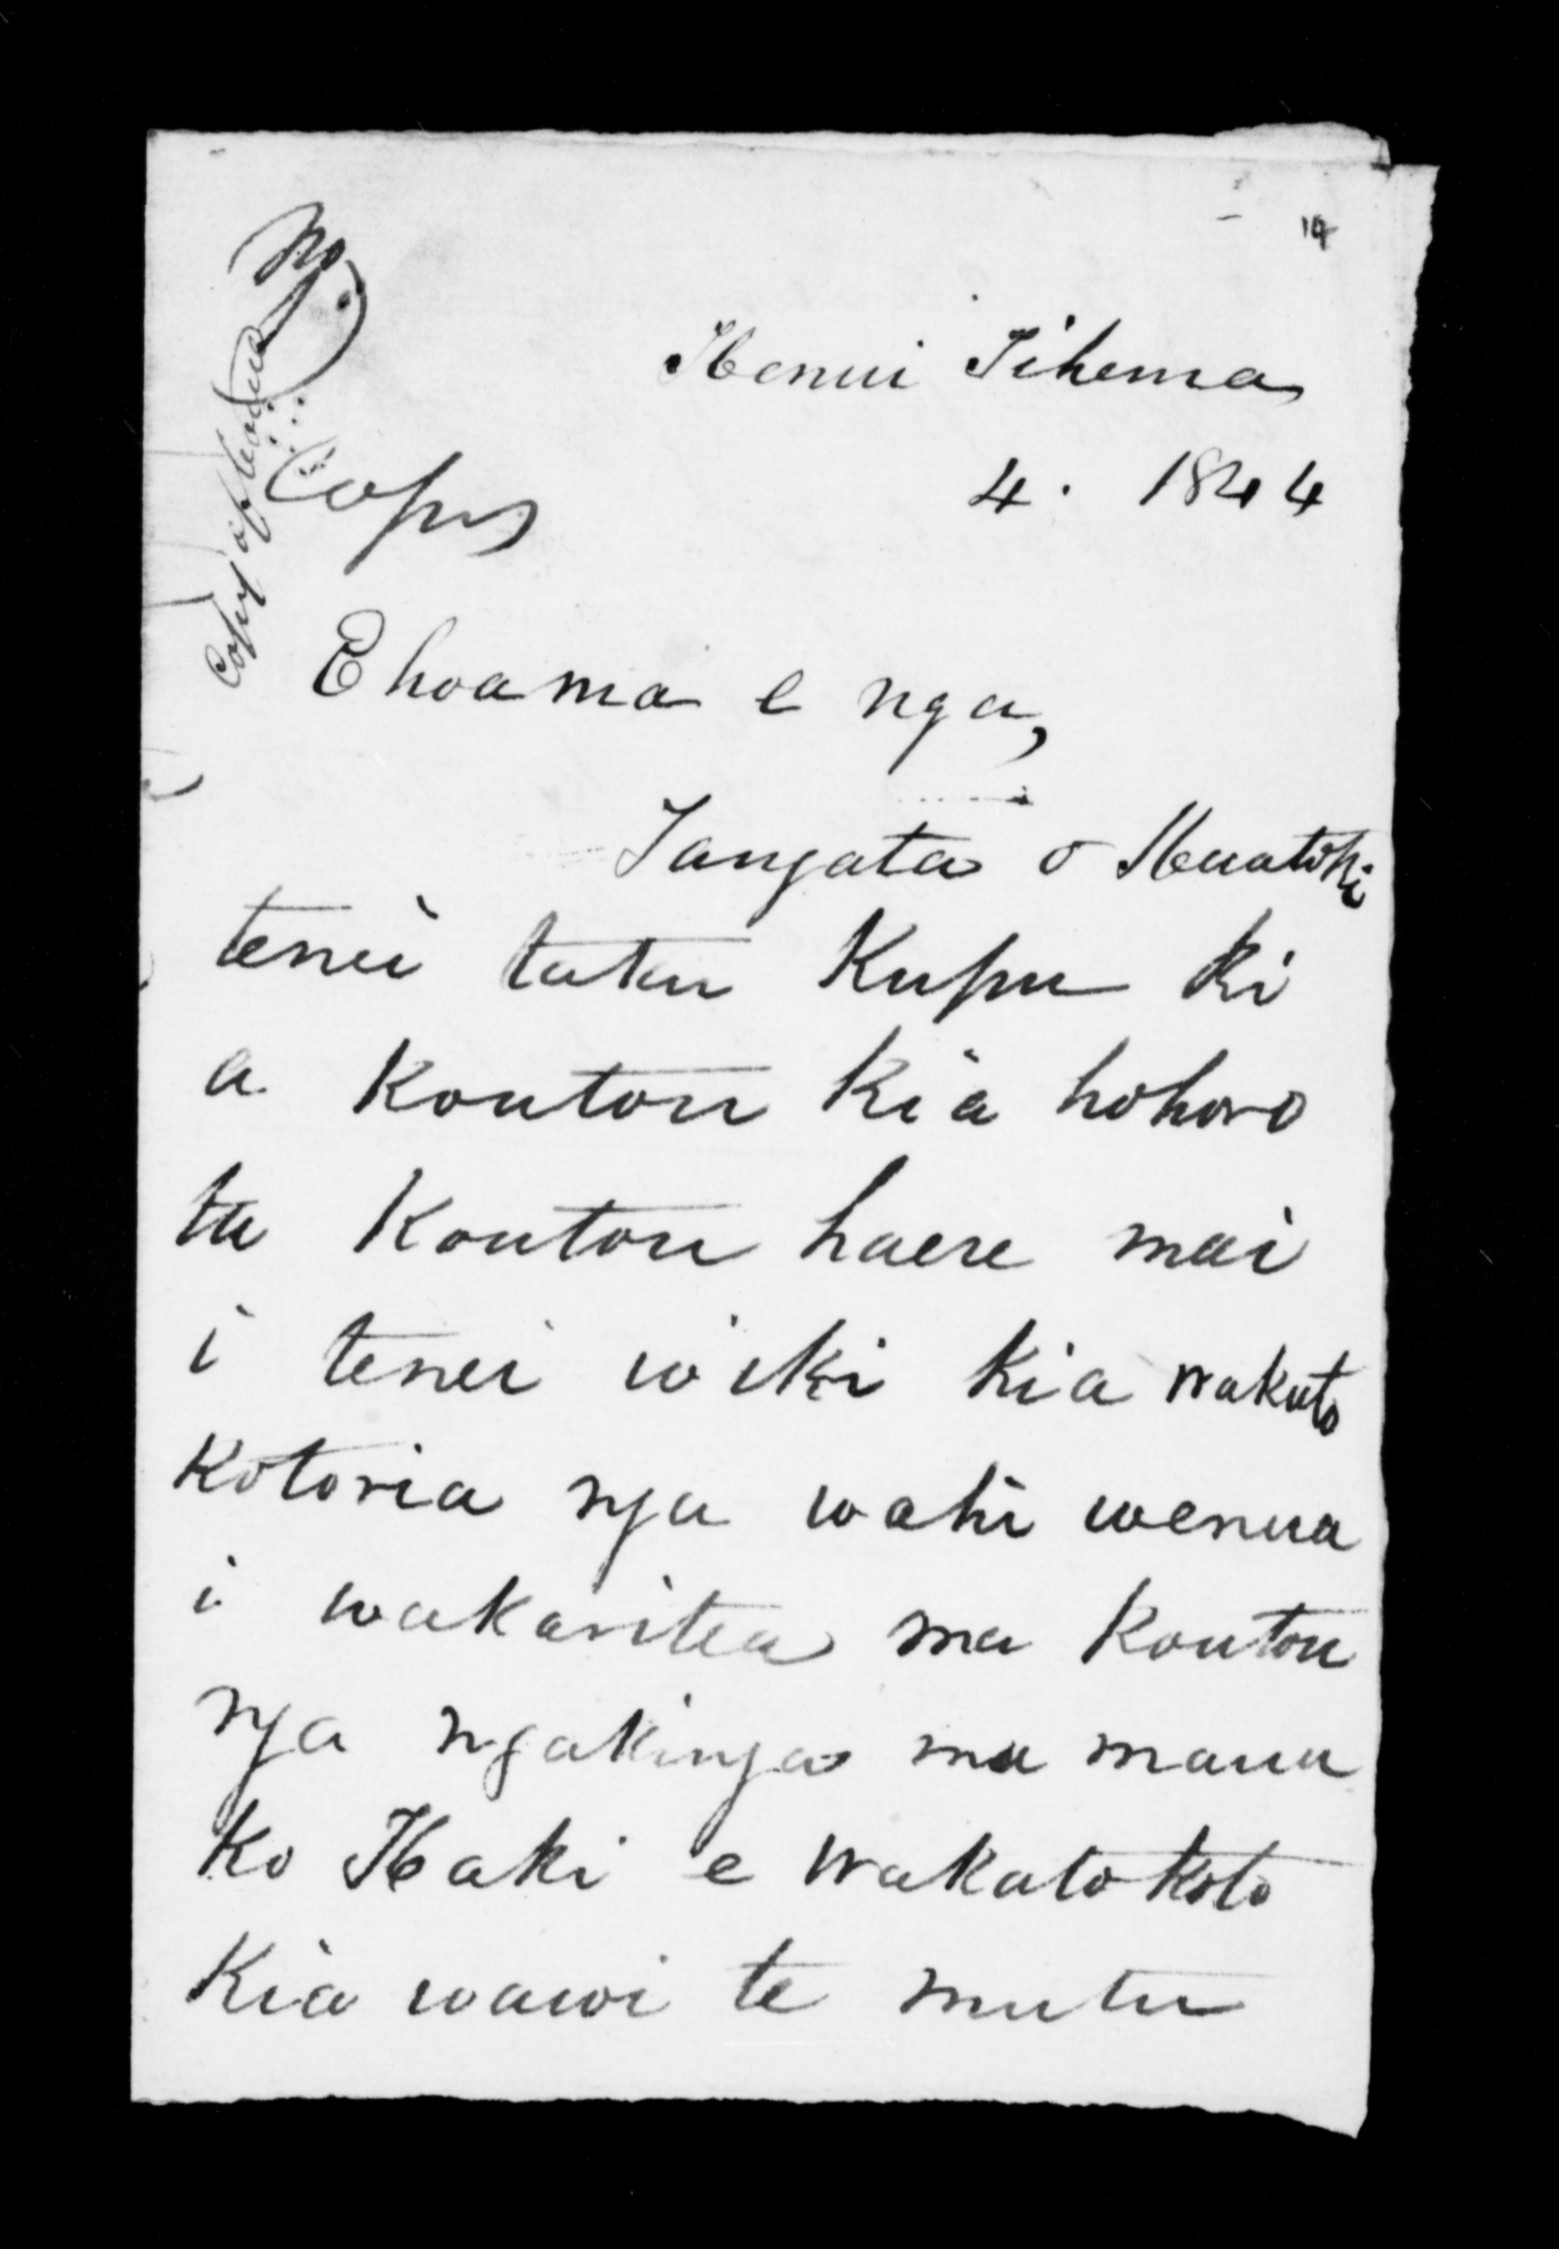 No.
Copy of
14
Henui Tihema
4. 1844
Copy
E hoa ma e nga,
Tangata o Huatoki
tenei taku Kupu ki
a Koutou Kia hohoro
ta Koutou haere mai
i tenei wiki Kia wakato
Kotoria nga wahi wenua
i wakaritea ma Koutou
nga ngakinga ma maua
ko Haki e wakatokoto
Kia wawi te mutu